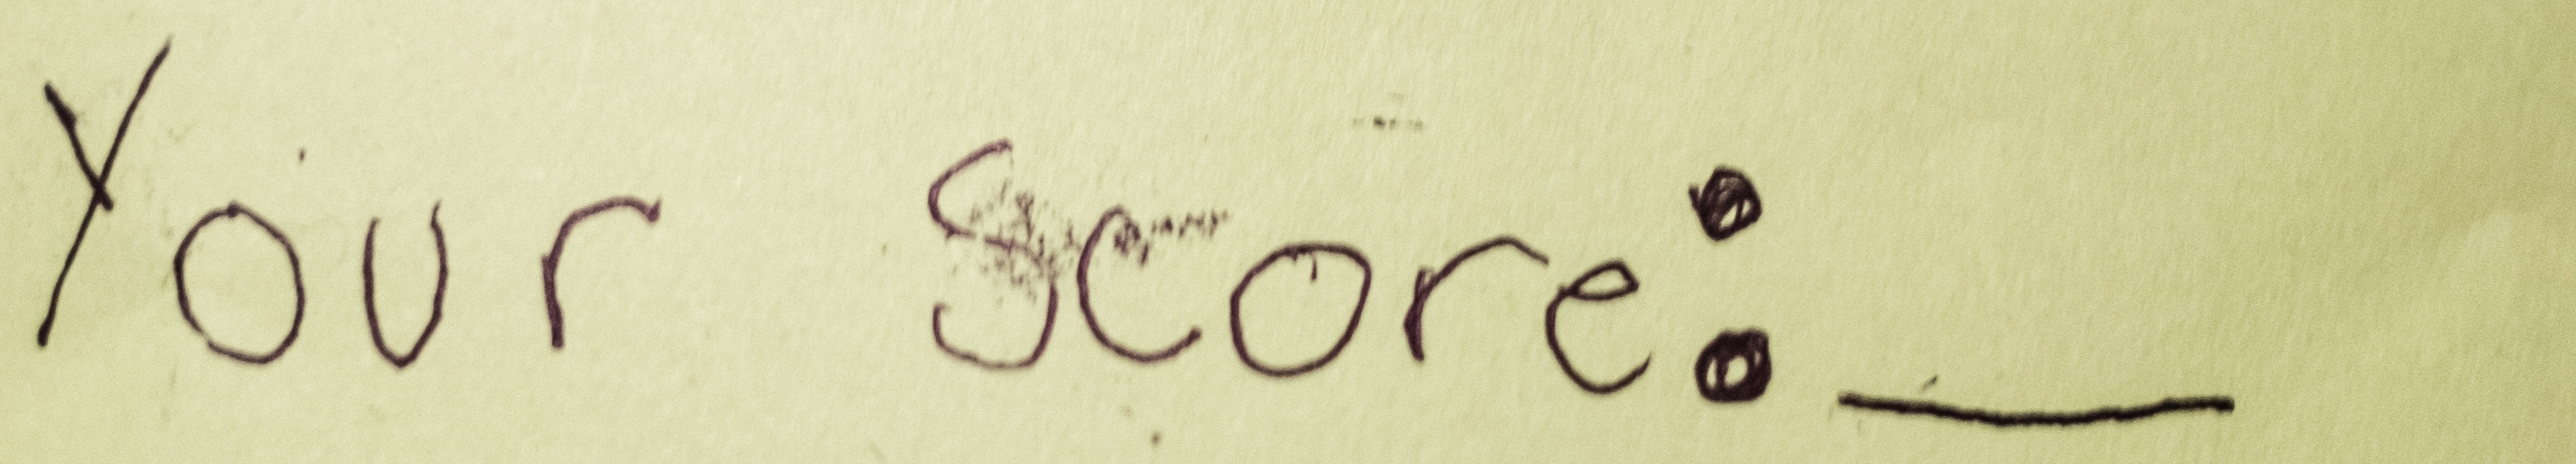 Your Score: ___